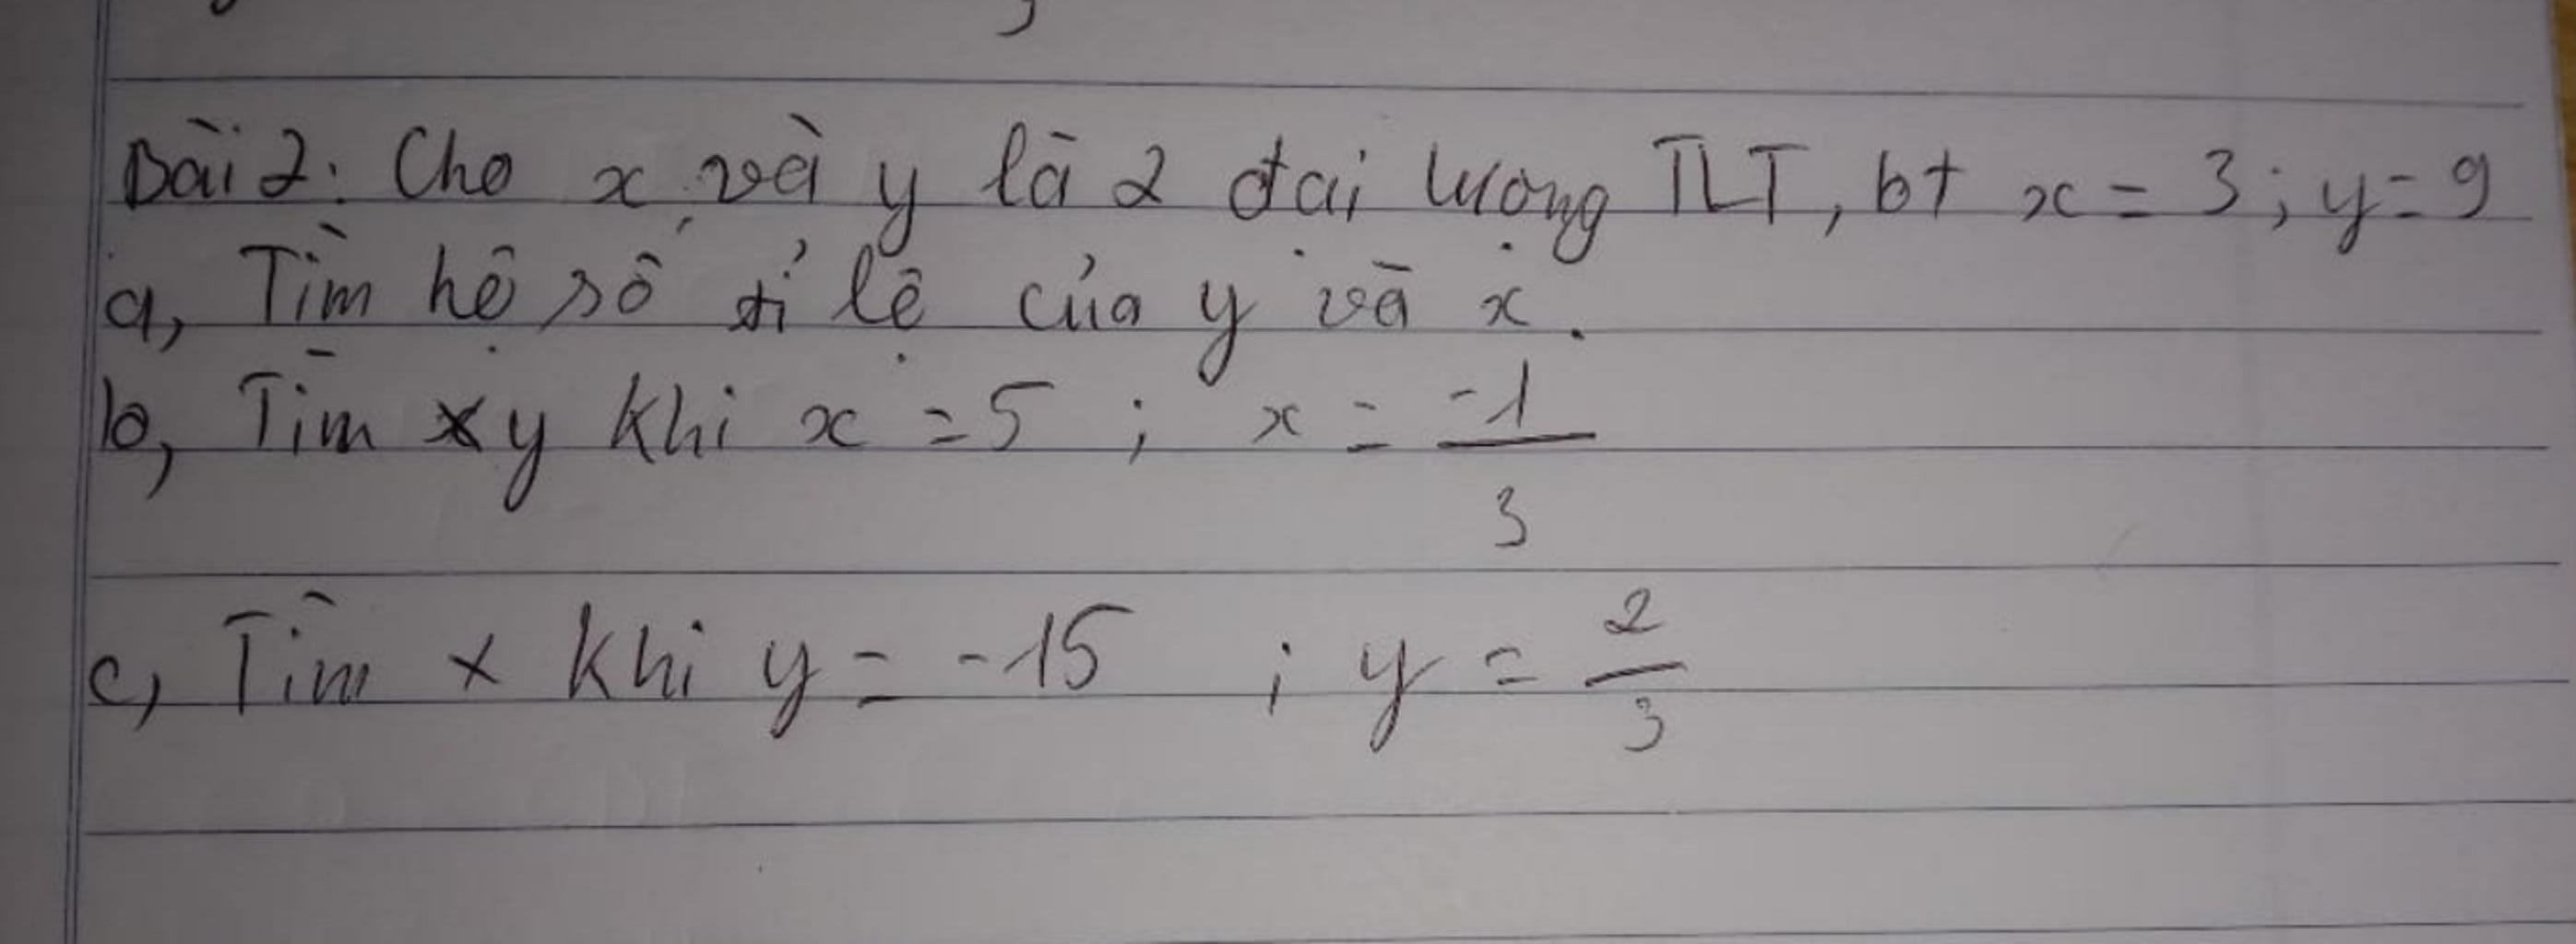 Bài 2: Cho x và y là 2 đại lượng TLT, bt x = 3; y = 9
a, Tìm hệ số tỉ lệ của y và x.
b, Tìm y khi x = 5 ; x = -1/3
c, Tìm x khi y = -15 ; y = 2/3